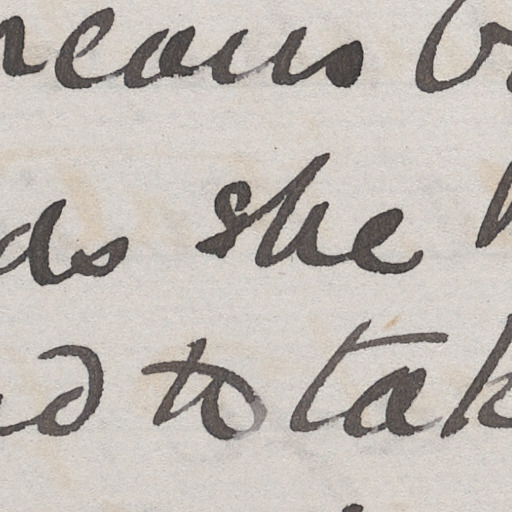 means b
ds she h
nd to tak